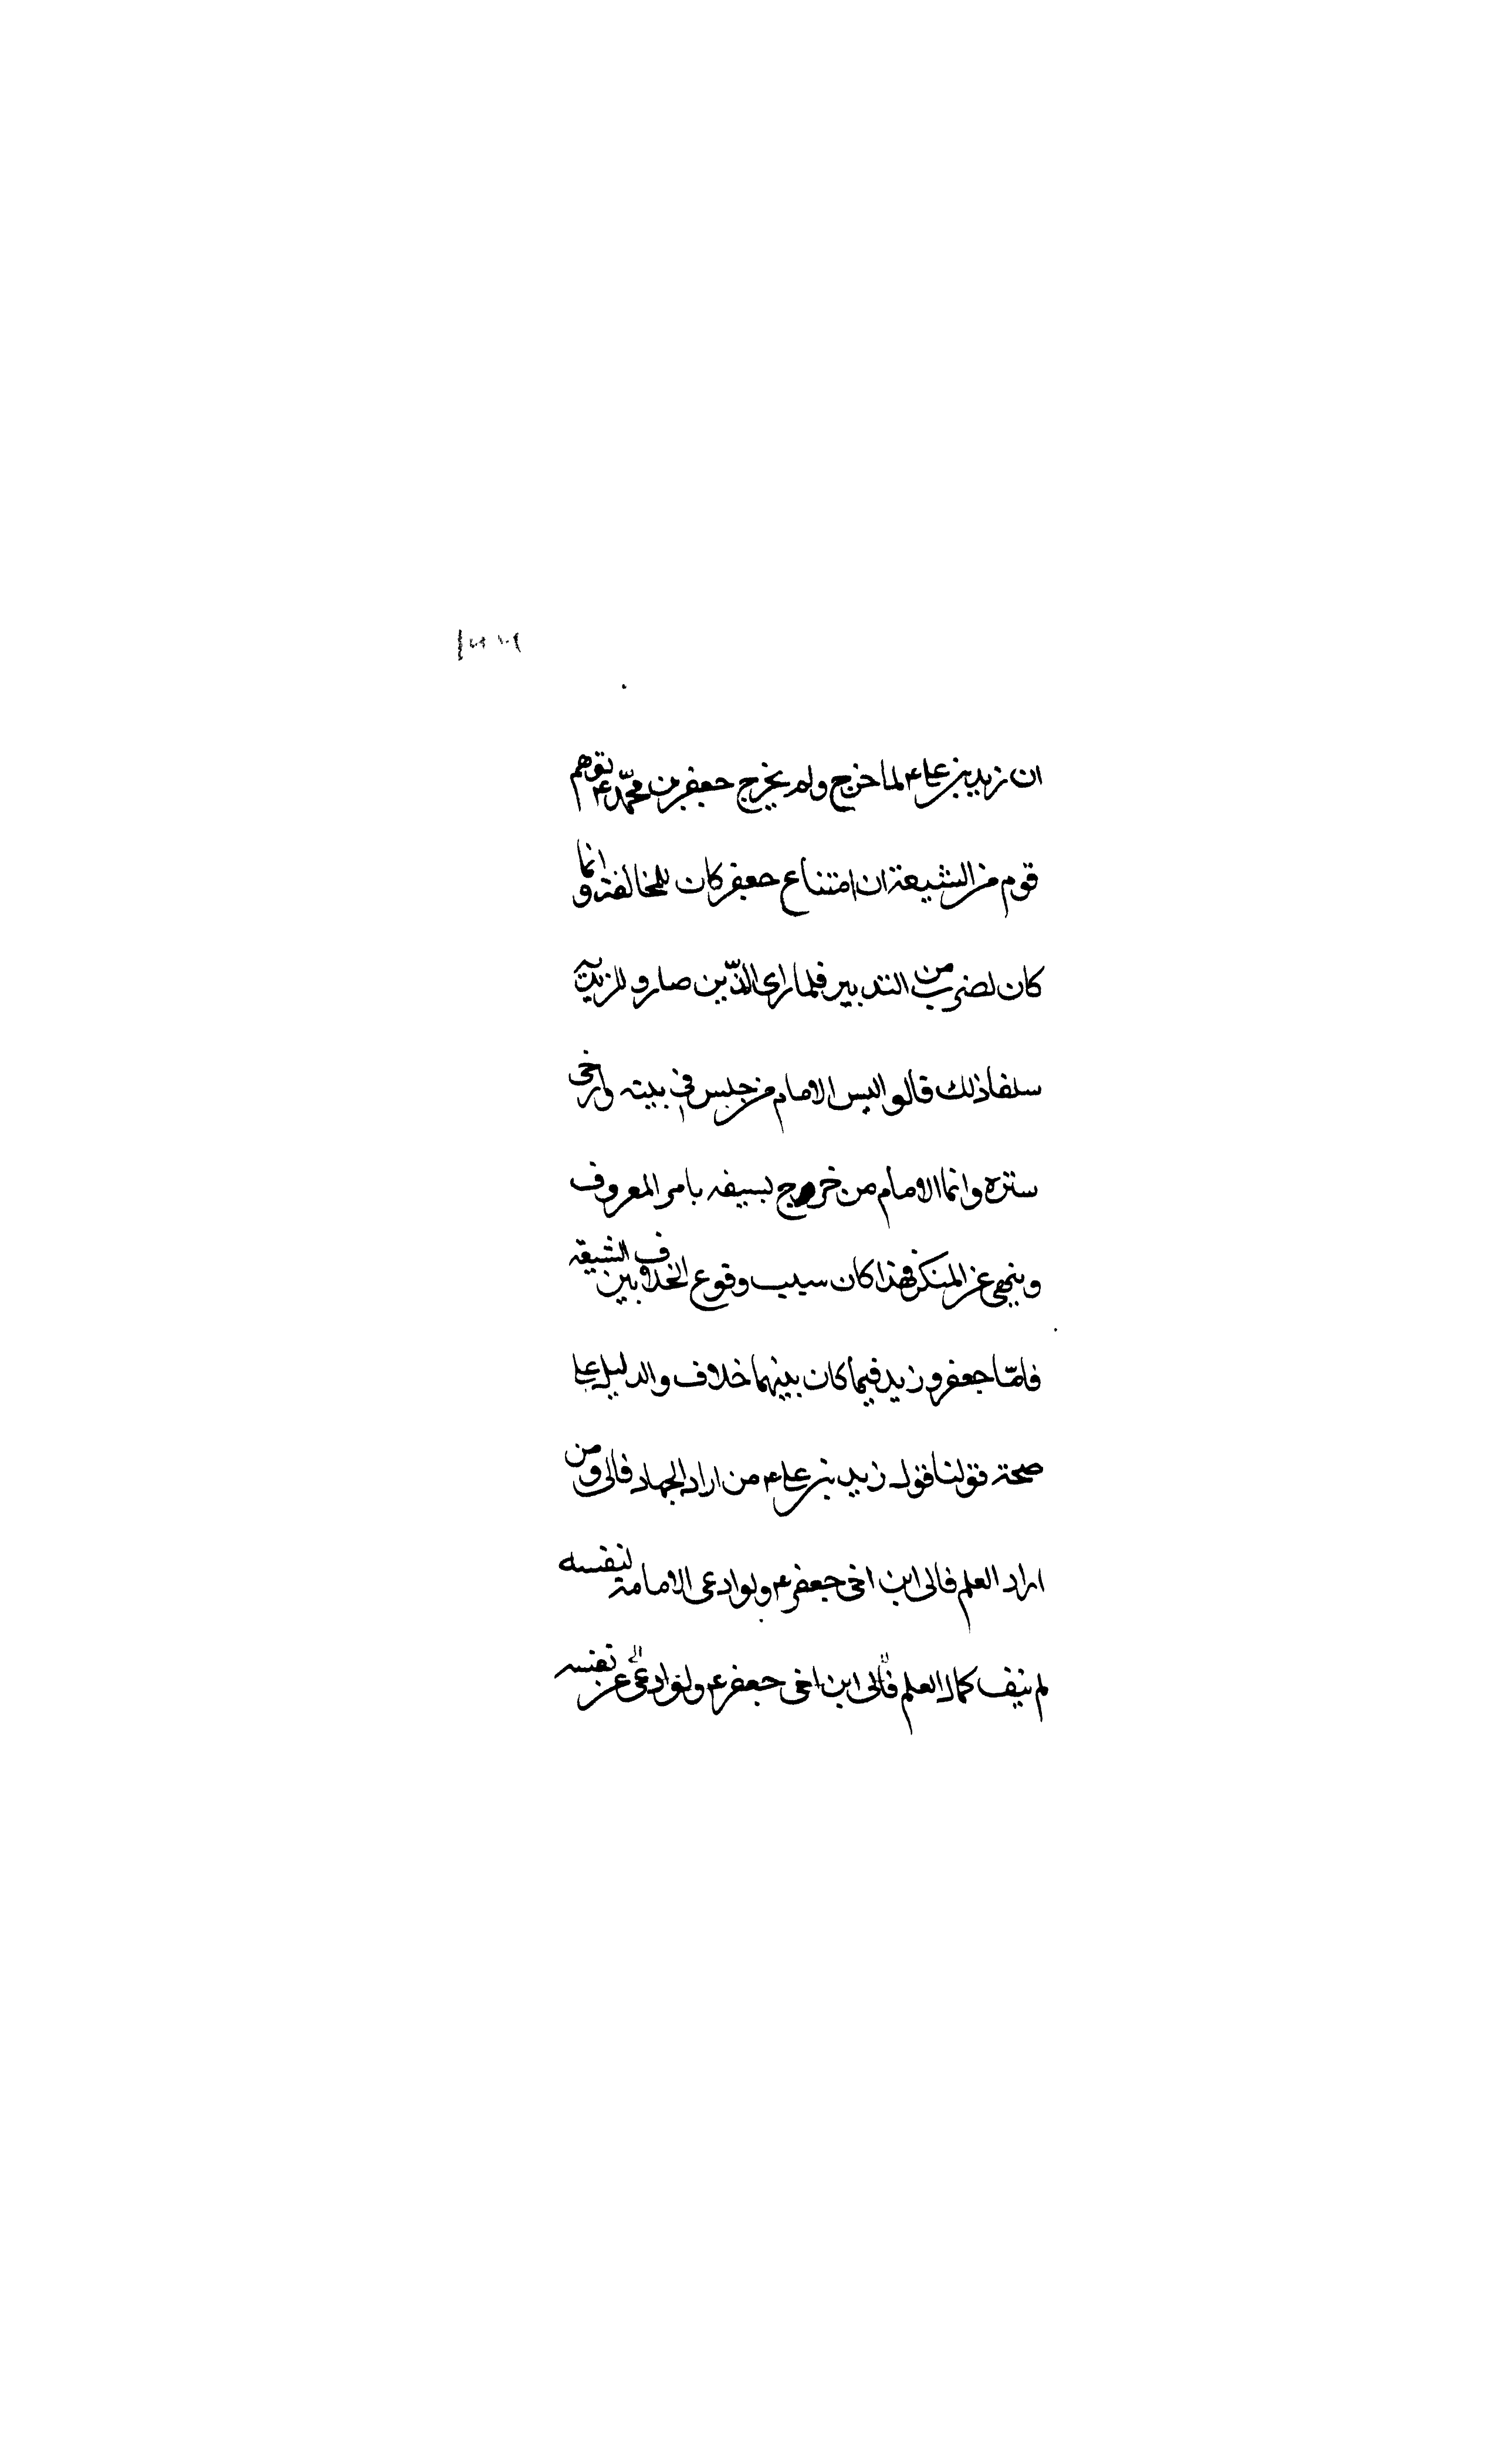 ان زيد بن علىء لما خرج ولم يخرج جعفر بن محمّدء توهم
قوم من الشيعة ان امتناع جعفر كان للمخالفة وانما
كان لضرب من التدبير فلما راى الذّين صارو للزيدية
سلفا ذلك قالو اليس الامام من جلس في بيته وارخى
ستره وانما الامام من خرج بسيفه يامر المعروف
وينهى عن المنكر فهذا كان سبب وقوع الخلاف بين الشيعة
فامّا جعفر وزيد فيما كان بينهما خلاف والدليل على
صحة قولنا قول زيد بن علىء من اراد الجهاد فالى ومن
اراد العلم فالى ابن اخى جعفرء ولو ادعى الامامة لنفسه
لم ينف كمال العلم فالى ابن اخى جعفرء ولو ادعى عن نفسه